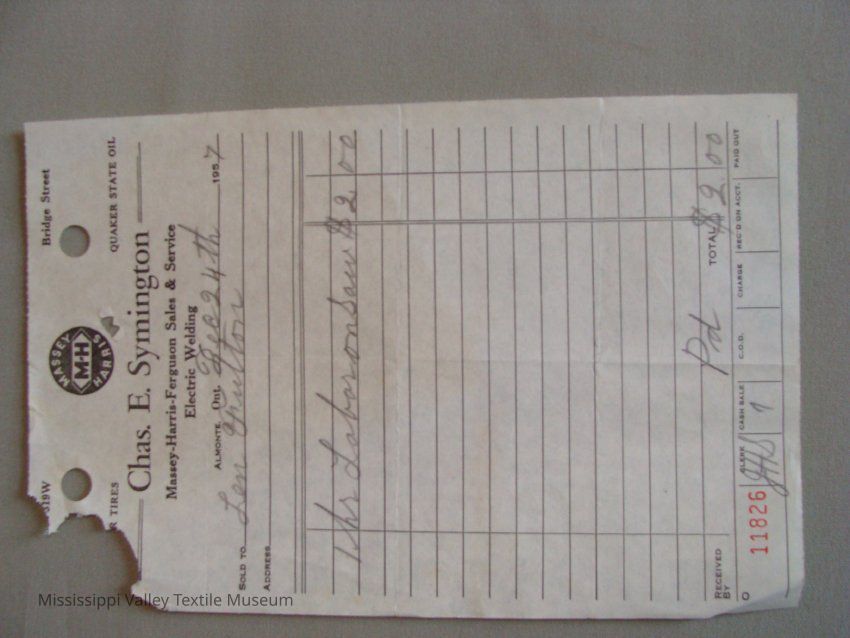 319W Bridge Street
MASSEY
M-H
HARRIS
R TIRES QUAKER STATE OIL
Chas. E. Symington
Massey-Harris-Ferguson Sales & Service
Electric Welding
ALMONTE, Ont. Dec 24th 1957
SOLD TO Len
ADDRESS
1 hr Labor on Saw $2 00
Pd TOTAL $2 00
RECEIVED BY
O CLERK CASH SALE C.O.D. CHARGE REC'D ON ACCT. PAID OUT
11826
Mississippi Valley Textile Museum